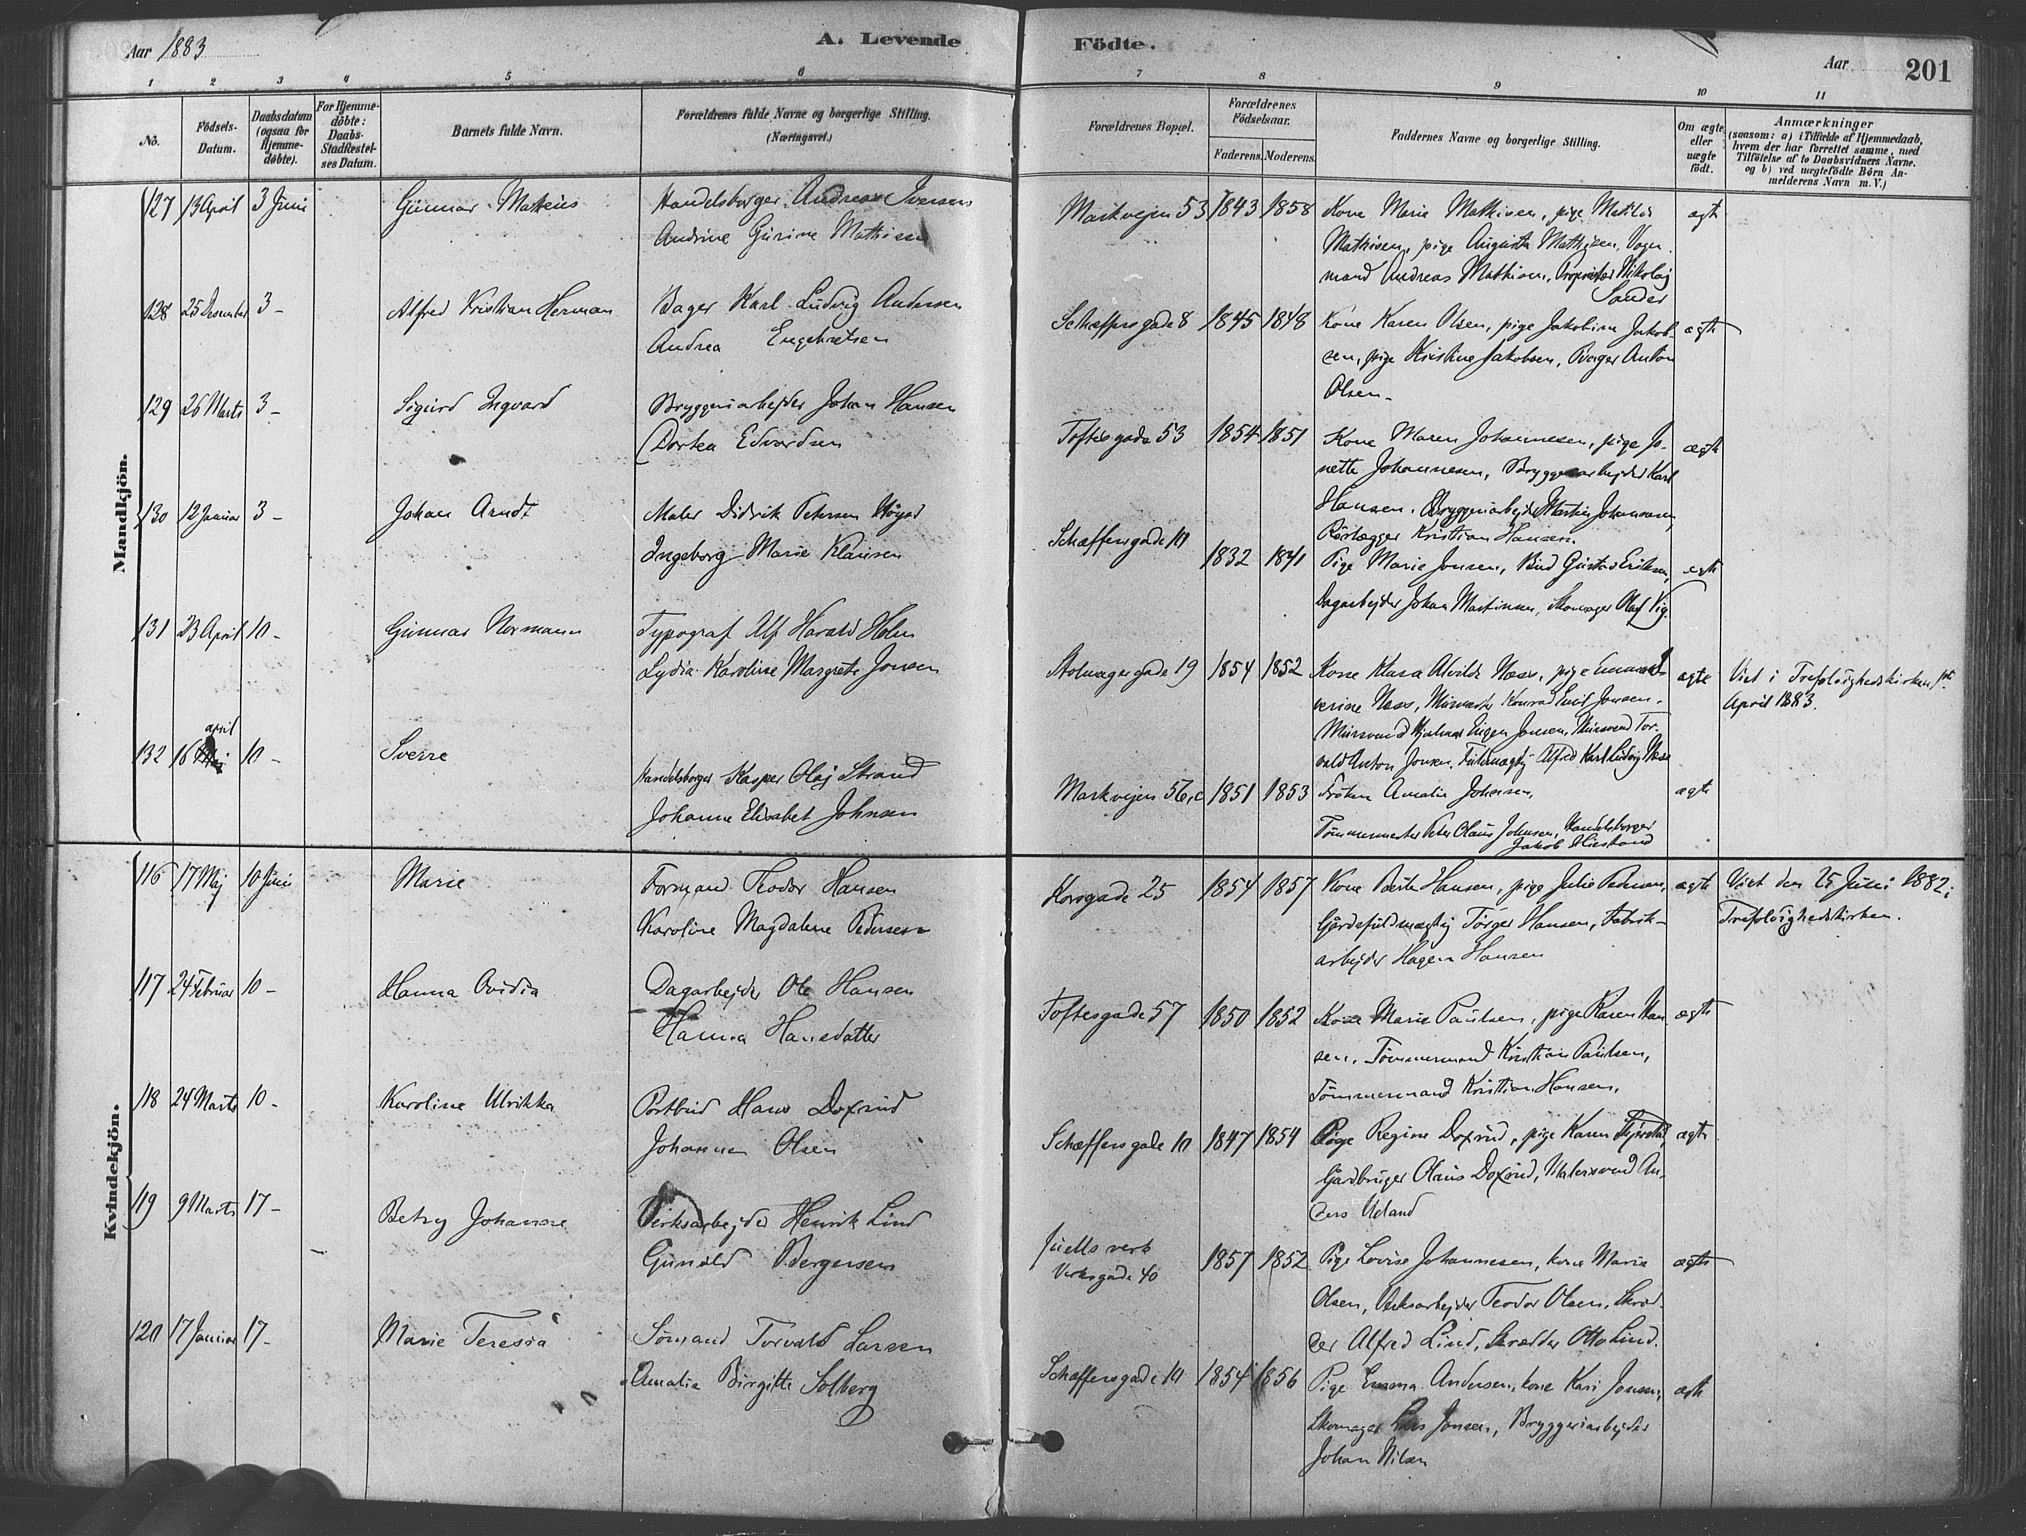 Aar 1883
A. Levende Födte.
Aar 201
1 2 3 4 5 6 7 8 9 10 11
No.
Födsels-Datum.
Daabsdatum (ogsaa for Hjemme-döbte).
For Hjemme-döbte: Daabs-Stadfæstel-ses Datum.
Barnets fulde Navn.
Forældrenes fulde Navne og borgerlige Stilling. (Næringsvei.)
Forældrenes Bopæl.
Forældrenes Födselsaar.
Faderens. Moderens.
Faddernes Navne og borgerlige Stilling.
Om ægte eller uægte födt.
Anmærkninger
(saasom: a) i Tilfælde af Hjemmedaab, hvem der har forrettet samme, med Tilföielse af to Daabsvidners Navne, og b) ved uægtefödte Börn An-melderens Navn m. V.)
Mandkjön.
127 13 April 3 Juni Gunnar Matheus
Handelsborger Andreas Iversen
Andrine Gurine Mathisen
Markvejen 53 1843 1858
Kone Marie Mathisen, pige Matilde
Mathisen, pige Augusta Mathisen, Vogn
mand Andreas Mathisen, Proprietær Nikolaj
Sander
ægte
128 25 Desember 3 - Alfred Kristian Herman
Bager Karl Ludvig Andersen
Andrea Engebretsen
Schæffersgade 8 1845 1848
Kone Karen Olsen, pige Jakobine Jakob-
sen, pige Kristine Jakobsen, Bager Anton
Olsen.
ægte
129 26 Marts 3 - Sigurd Ingvard
Bryggeriarbejder Johan Hansen
Dortea Edvardsen
Toftesgade 53 1854 1851
Kone Maren Johannesen, pige Jo-
nette Johannesen, Bryggeriarbejder Karl
Hansen, Bryggeriarbejder Martin Johannesen,
Rörlægger Kristian Hansen.
ægte
130 12 Januar 3 - Johan Arndt
Maler Didrik Petersen
Ingeborg Marie Klausen
Schæffersgade 10 1832 1841
Pige Marie Jonsen, Bud Gustav Eriksen,
Dagarbejder Johan Martinsen, Skomager Olaf Vig.
ægte
131 23 April 10 - Gunnar Normann
Typograf Alf Harald Holm
Lydia Karoline Margrete Jonsen
Stolmagergade 19 1854 1852
Kone Klara Alvilde Næss, pige
Næss, Murmester Konrad Emil Jonsen,
Mursvend Hjalmar Eugen Jonsen, Mursvend Tor-
vald Anton Jonsen, Fuldmægtig Alfred Karl Ludvig Næss
ægte
Viet i Trefoldighedskirken 1ste
April 1883.
april
132 16 10 - Sverre
Handelsborger Kasper Olaj Strand
Johanne Elisabet Johnsen
Markvejen 56, c 1851 1853
Fröken Amalie Johnsen,
Tømmermester Peter Olaus Johnsen, Handelsborger
Jakob
ægte
Kvindekjön.
116 17 Maj 10 Juni Marie
Formand Teodor Hansen
Karoline Magdalene Pedersen
Korsgade 25 1854 1857
Kone Berte Hansen, pige Julie Pedersen,
Gårdsfuldmægtig Törger Hansen, Fabrik-
arbejder Hagen Hansen
ægte
Viet den 25 Juni 1882 i
Trefoldighedskirken.
117 24 Februar 10 - Hanna Ovidia
Dagarbejder Ole Hansen
Hanna Hansdatter
Toftesgade 57 1850 1852
Kone Marie Paulsen, pige Karen Han
sen, Tömmermand Kristian Paulsen,
Tömmermand Kristian Hansen.
ægte
118 24 Marts 10 - Karoline Ulrikka
Postbud Hans Doxrud
Johanne Olsen
Schæffersgade 10 1847 1854
Pige Regine Doxrud, pige Karen
Gardbruger Olaus Doxrud, Malersvend An-
ders Ueland
ægte
119 9 Marts 17 - Betzy Johanne
Verksarbejder Henrik Lind
Gunild Bergersen
Juells verk
Verksgade 40 1857 1852
Pige Lovise Johannesen, kone Maria
Olsen, Verksarbejder Teodor Olsen, Skræd-
der Alfred Lind, Skrædder Otto Lind.
ægte
120 17 Januar 17 - Marie Teresia
Sömand Torvald Larsen
Amalia Birgitte Solberg
Schæffersgade 10 1854 1856
Pige Emma Andersen, kone Kari Jonsen,
Skomager Lars Jonsen, Bryggeriarbejder
Johan Nilsen
ægte